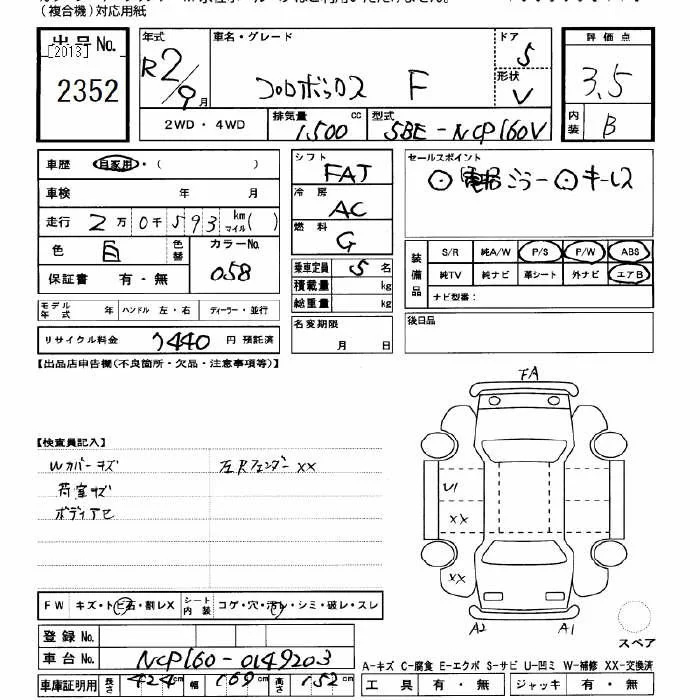 (複合機)対応用紙
出品No. [2013] 2352
年式 R2/9月
車名・グレード カロロボックス F
ドア 5
形状 V
評価点 3.5
内装 B
2WD・4WD
排気量 1,500 cc
型式 5BE-NCP160V
車歴 自家用・( )
車検 年 月
走行 2万0千593 km マイル( )
色 白 色替 カラーNo. 058
保証書 有・無
モデル年式 年 ハンドル 左・右 ディーラー・並行
リサイクル料金 7440 円 預託済
シフト FAT
冷房 AC
燃料 G
乗車定員 5 名
積載量 kg
総重量 kg
名変期限 月 日
セールスポイント
ミラー ⊙キーレス
装備品 S/R 純A/W P/S P/W ABS
純TV 純ナビ 革シート 外ナビ エアB
ナビ型番:
後日品
【出品店申告欄(不良箇所・欠品・注意事項等)】
【検査員記入】
Wカバーキズ 左Rフェンダーxx
荷室キズ
ボディアセ
FA
U1
xx
xx
A2 A1
スペア
FW キズ・トビ石・割レX シート内装 コゲ・穴・汚レ・シミ・破レ・スレ
登録No.
車台No. NCP160-0149203
車庫証明用 長さ 424 cm 幅 169 cm 高さ 152 cm
A-キズ C-腐食 E-エクボ S-サビ U-凹ミ W-補修 XX-交換済
工具 有・無 ジャッキ 有・無